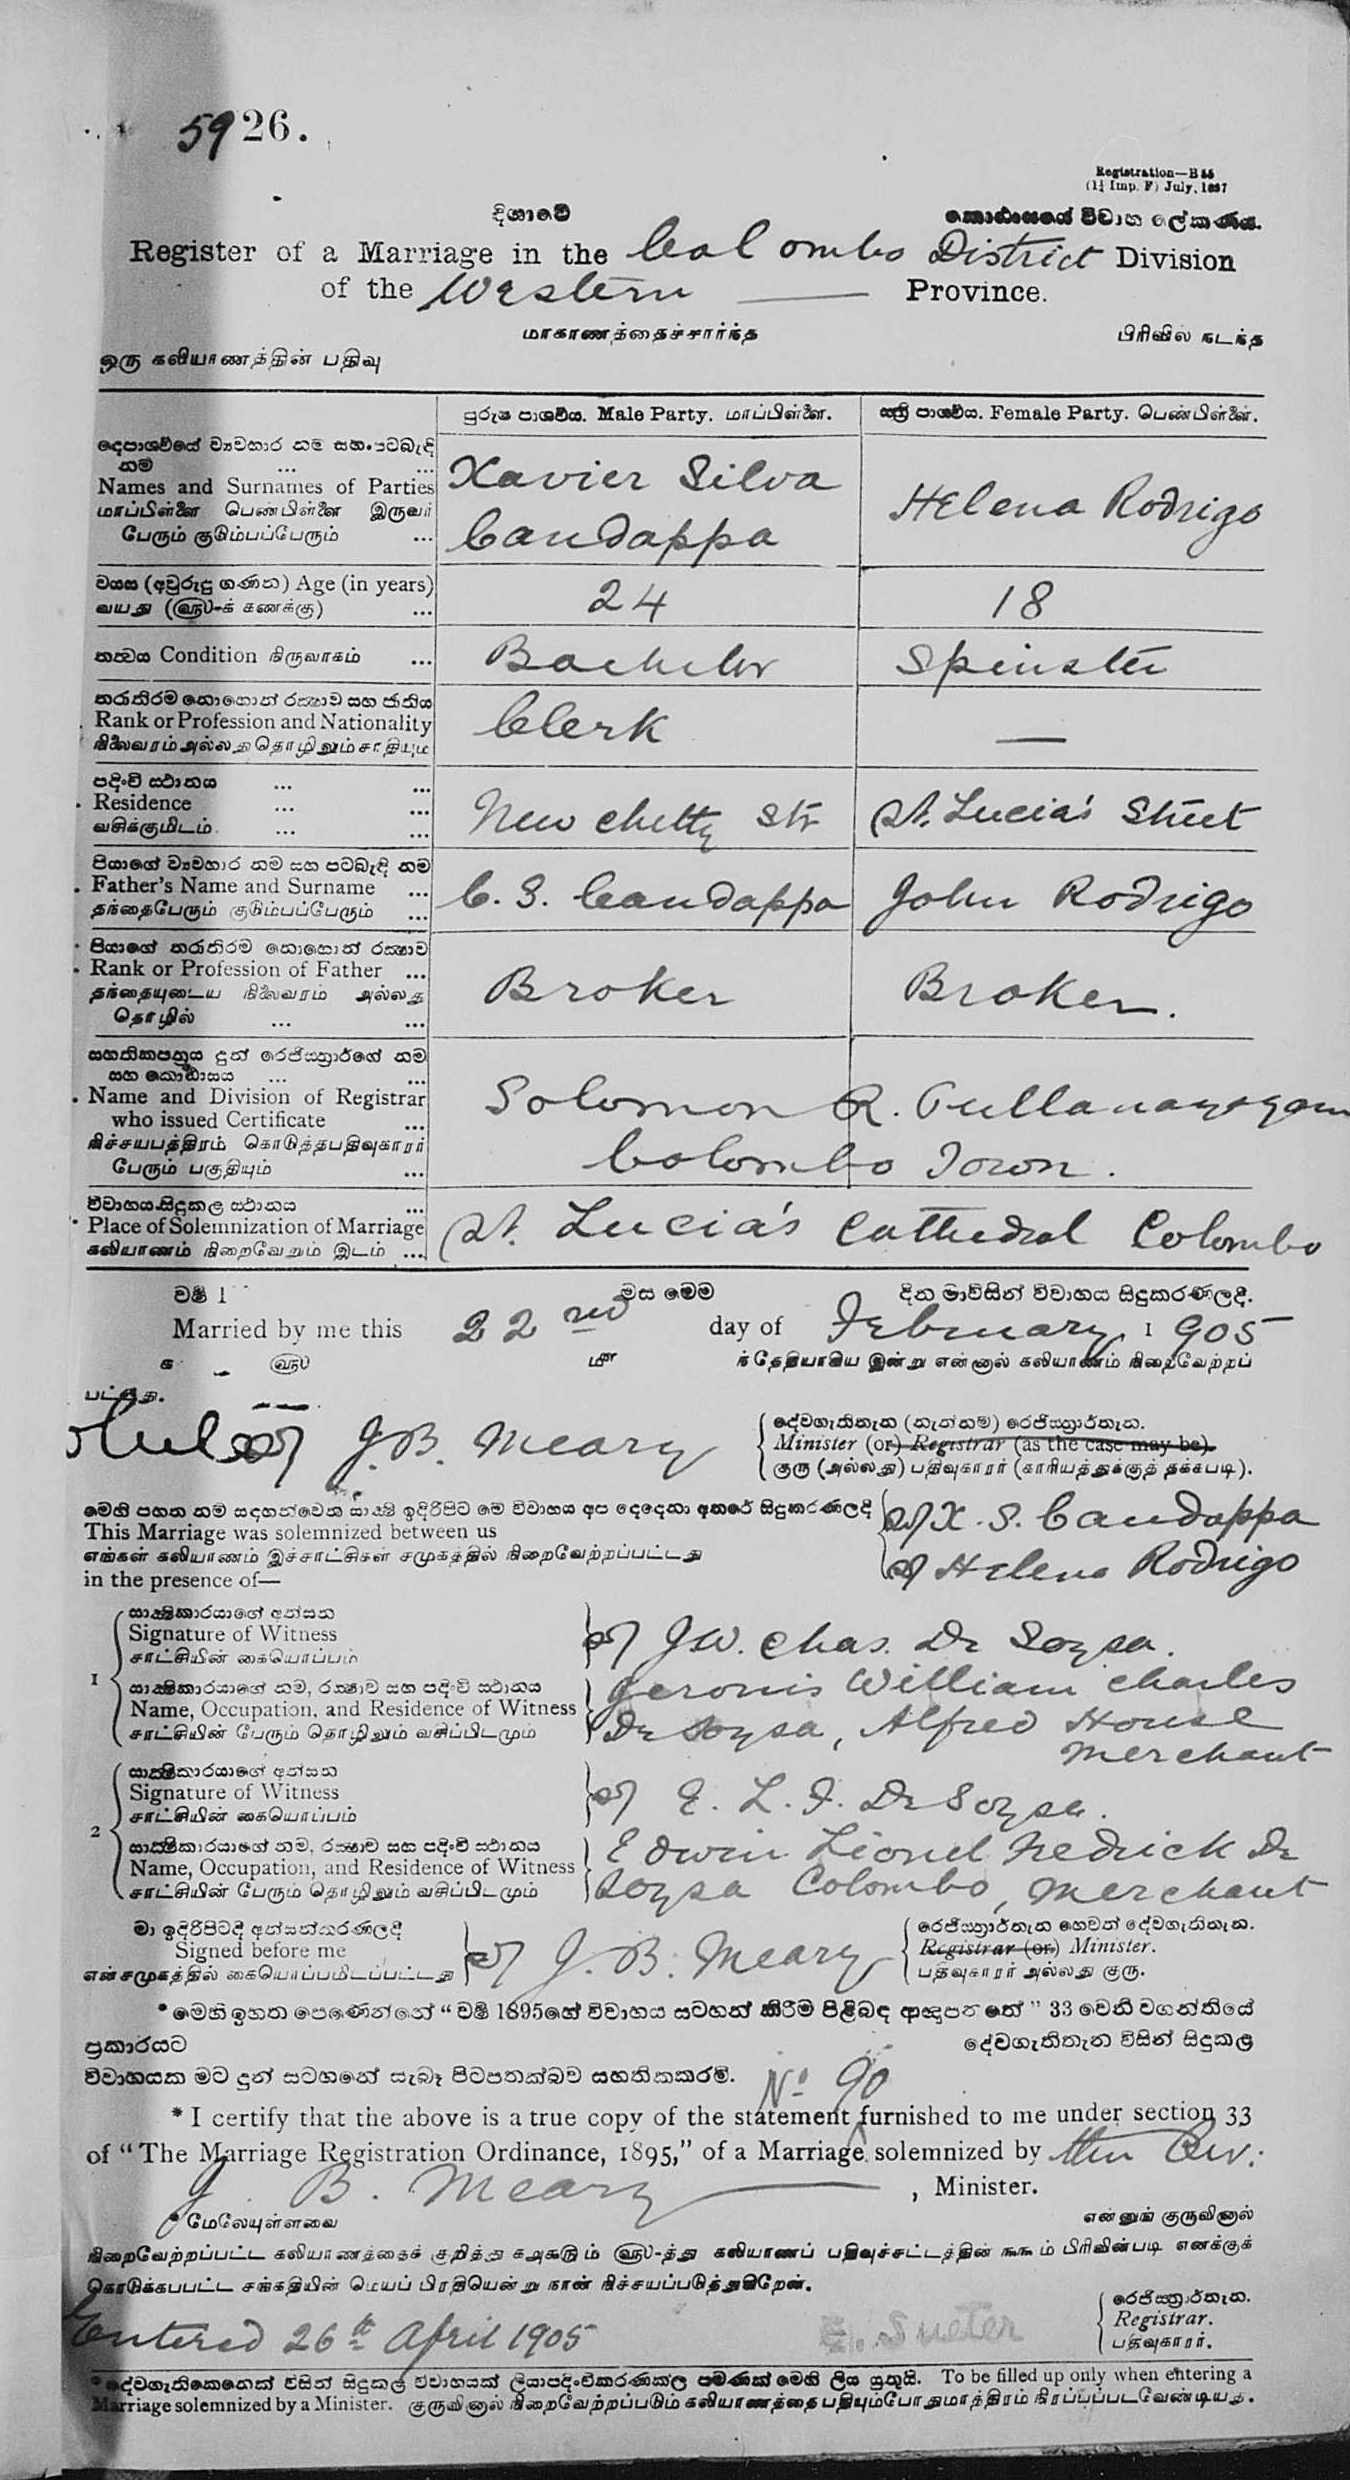 5926.
Registration—B 55
(1¼ Imp. F) July, 1897
දිශාවේ කොට්ඨාසයේ විවාහ ලේකණය.
Register of a Marriage in the Colombo District Division
of the Western — Province.
மாகாணத்தைச்சார்ந்த பிரிவில் நடந்த
ஒரு கலியாணத்தின் பதிவு
පුරුෂ පාර්ශවය. Male Party. மாப்பிள்ளை. ස්ත්‍රී පාර්ශවය. Female Party. பெண்பிள்ளை.
දෙපාර්ශවයේ ව්‍යවහාර නම සහ පටබැඳි
නම ... ...
Names and Surnames of Parties
மாப்பிள்ளை பெண்பிள்ளை இருவர்
பேரும் குடும்பப்பேரும் ...
Xavier Silva
Candappa
Helena Rodrigo
වයස (අවුරුදු ගණන) Age (in years)
வயது (௵-க் கணக்கு) ...
24
18
තත්වය Condition நிருவாகம் ...
Bachelor
Spinster
තරාතිරම නොහොත් රක්ෂාව සහ ජාතිය
Rank or Profession and Nationality
நிலைவரம் அல்லது தொழிலும் சாதியும்
Clerk
—
පදිංචි ස්ථානය ... ...
Residence ... ...
வசிக்குமிடம் ... ...
New Chetty Str
St. Lucia's Street
පියාගේ ව්‍යවහාර නම සහ පටබැඳි නම
Father's Name and Surname ...
தந்தைபேரும் குடும்பப்பேரும் ...
C. S. Candappa
John Rodrigo
පියාගේ තරාතිරම නොහොත් රක්ෂාව
Rank or Profession of Father ...
தந்தையுடைய நிலைவரம் அல்லது
தொழில் ... ...
Broker
Broker.
සහතිකපත්‍රය දුන් රෙජිස්ත්‍රාර්ගේ නම
සහ කොට්ඨාසය ... ...
Name and Division of Registrar
who issued Certificate ...
நிச்சயபத்திரம் கொடுத்தபதிவுகாரர்
பேரும் பகுதியும் ...
Solomon R.
Colombo Town.
විවාහය සිදුකල ස්ථානය ...
Place of Solemnization of Marriage
கலியாணம் நிறைவேறும் இடம் ...
St. Lucia's Cathedral Colombo
වර්ෂ 1 මස මෙම දින මාවිසින් විවාහය සිදුකරණලදී.
Married by me this 22nd day of February 1905
௵ ௴ ந்தேதியாகிய இன்று என்னால் கலியாணம் நிறைவேற்றப்
பட்டது.
J. B. Meary
දේවගැතිතැන (නැත්නම්) රෙජිස්ත්‍රාර්තැන.
Minister (or) Registrar (as the case may be).
குரு (அல்லது) பதிவுகாரர் (காரியத்துக்குத் தக்கபடி).
මෙහි පහත නම් සඳහන්වෙන සාක්ෂි ඉදිරිපිට මේ විවාහය අප දෙදෙනා අතරේ සිදුකරණලදි
This Marriage was solemnized between us
எங்கள் கலியாணம் இச்சாட்சிகள் சமுகத்தில் நிறைவேற்றப்பட்டது
in the presence of—
X. S. Candappa
Helena Rodrigo
සාක්ෂිකාරයාගේ අත්සන
Signature of Witness
சாட்சியின் கையொப்பம்
J W. Chas. De Soysa.
1
සාක්ෂිකාරයාගේ නම, රක්ෂාව සහ පදිංචි ස්ථානය
Name, Occupation, and Residence of Witness
சாட்சியின் பேரும் தொழிலும் வசிப்பிடமும்
Jeronis William Charles
De Soysa, Alfred House
Merchant
සාක්ෂිකාරයාගේ අත්සන
Signature of Witness
சாட்சியின் கையொப்பம்
E. L. F. De Soysa.
2
සාක්ෂිකාරයාගේ නම, රක්ෂාව සහ පදිංචි ස්ථානය
Name, Occupation, and Residence of Witness
சாட்சியின் பேரும் தொழிலும் வசிப்பிடமும்
Edwin Lionel Fredrick De
Soysa Colombo, Merchant
මා ඉදිරිපිටදී අත්සන්කරණලදි
Signed before me
என் சமுகத்தில் கையொப்பமிடப்பட்டது
J. B. Meary
රෙජිස්ත්‍රාර්තැන හෙවත් දේවගැතිතැන.
Registrar (or) Minister.
பதிவுகாரர் அல்லது குரு.
* මෙහි ඉහත පෙණෙන්නේ “ වර්ෂ 1895හේ විවාහය සටහන් කිරීම පිළිබඳ ආඥාපනතේ ” 33 වෙනි වගන්තියේ
ප්‍රකාරයට දේවගැතිතැන විසින් සිදුකල
විවාහයක මට දුන් සටහනේ සැබෑ පිටපතක්බව සහතිකකරමි.
No 90
* I certify that the above is a true copy of the statement furnished to me under section 33
of “The Marriage Registration Ordinance, 1895,” of a Marriage solemnized by the Rev:
J. B. Meary — , Minister.
* மேலேயுள்ளவை என்னுங் குருவினால்
நிறைவேற்றப்பட்ட கலியாணத்தைக் குறித்து ௧௮௯௫ம் ௵-த்து கலியாணப் பதிவுச்சட்டத்தின் ௩௩ம் பிரிவின்படி எனக்குக்
கொடுக்கப்பட்ட சங்கதியின் மெய்ப் பிரதியென்று நான் நிச்சயப்படுத்துகிறேன்.
Entered 26th April 1905
රෙජිස්ත්‍රාර්තැන.
Registrar.
பதிவுகாரர்.
* දේවගැතිකෙනෙක් විසින් සිදුකල විවාහයක් ලියාපදිංචිකරණකල පමණක් මෙහි ලිය යුතුයි. To be filled up only when entering a
Marriage solemnized by a Minister. குருவினால் நிறைவேற்றப்படும் கலியாணத்தை பதியும்போதுமாத்திரம் நிரப்பப்படவேண்டியது.